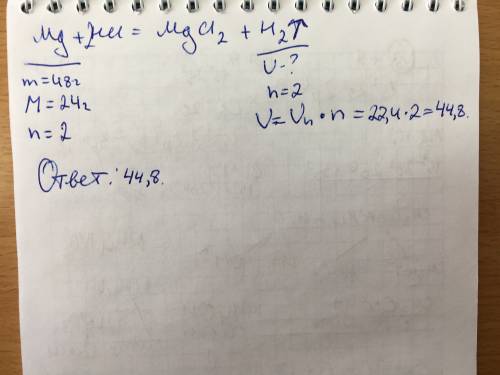 Mg + 2HCl = MgCl₂ + H₂↑
m = 48г
M = 24г
n = 2
V - ?
n = 2
V = Vn · n = 22,4 · 2 = 44,8.
Ответ: 44,8.